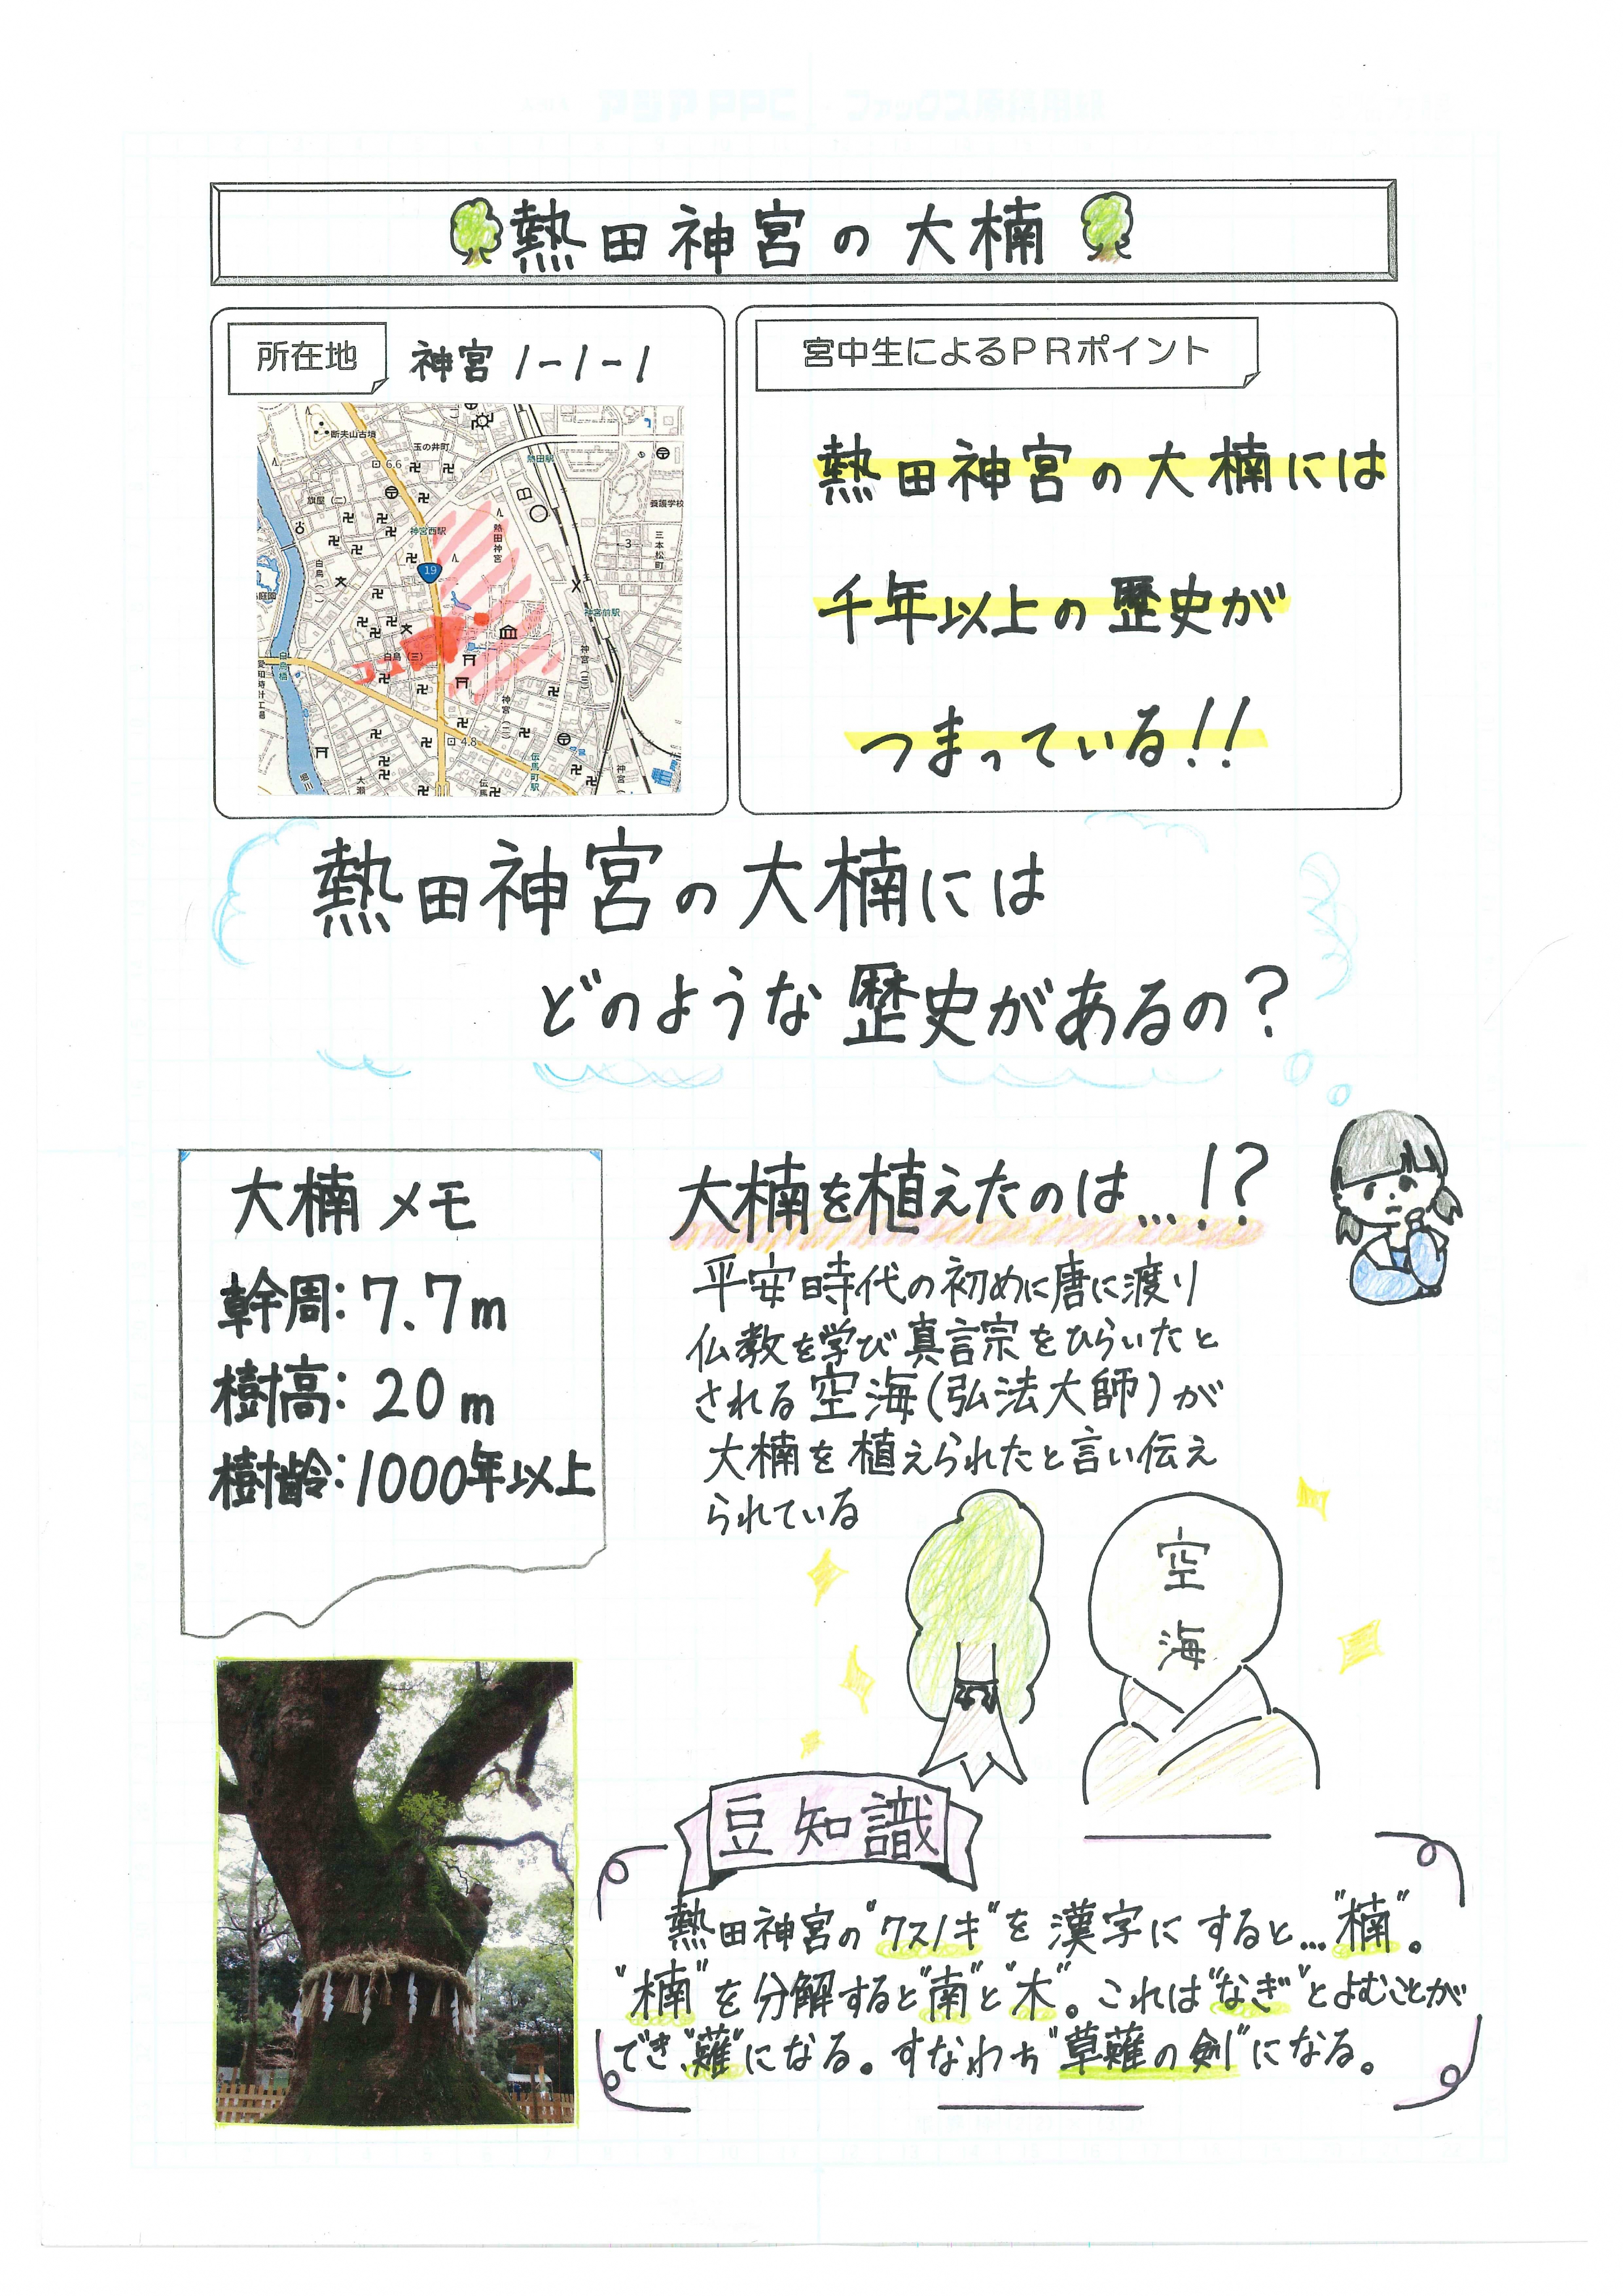 熱田神宮の大楠
所在地
神宮1-1-1
断夫山古墳
玉の井町
6.6
熱田駅
旗屋(二)
養護学校
神宮西駅
熱田神宮
三本松町
3
白鳥(二)
19
神宮前駅
白鳥(三)
白鳥橋
愛知時計工場
神宮(二)
4.8
伝馬町駅
堀川
宮中生によるPRポイント
熱田神宮の大楠には
千年以上の歴史が
つまっている!!
熱田神宮の大楠には
どのような歴史があるの?
大楠メモ
幹周:7.7m
樹高:20m
樹齢:1000年以上
大楠を植えたのは…!?
平安時代の初めに唐に渡り
仏教を学び真言宗をひらいたと
される空海(弘法大師)が
大楠を植えられたと言い伝え
られている
空海
豆知識
熱田神宮の"クスノキ"を漢字にすると…"楠"。
"楠"を分解すると"南"と"木"。これは"なぎ"とよむことが
でき、"薙"になる。すなわち"草薙の剣"になる。